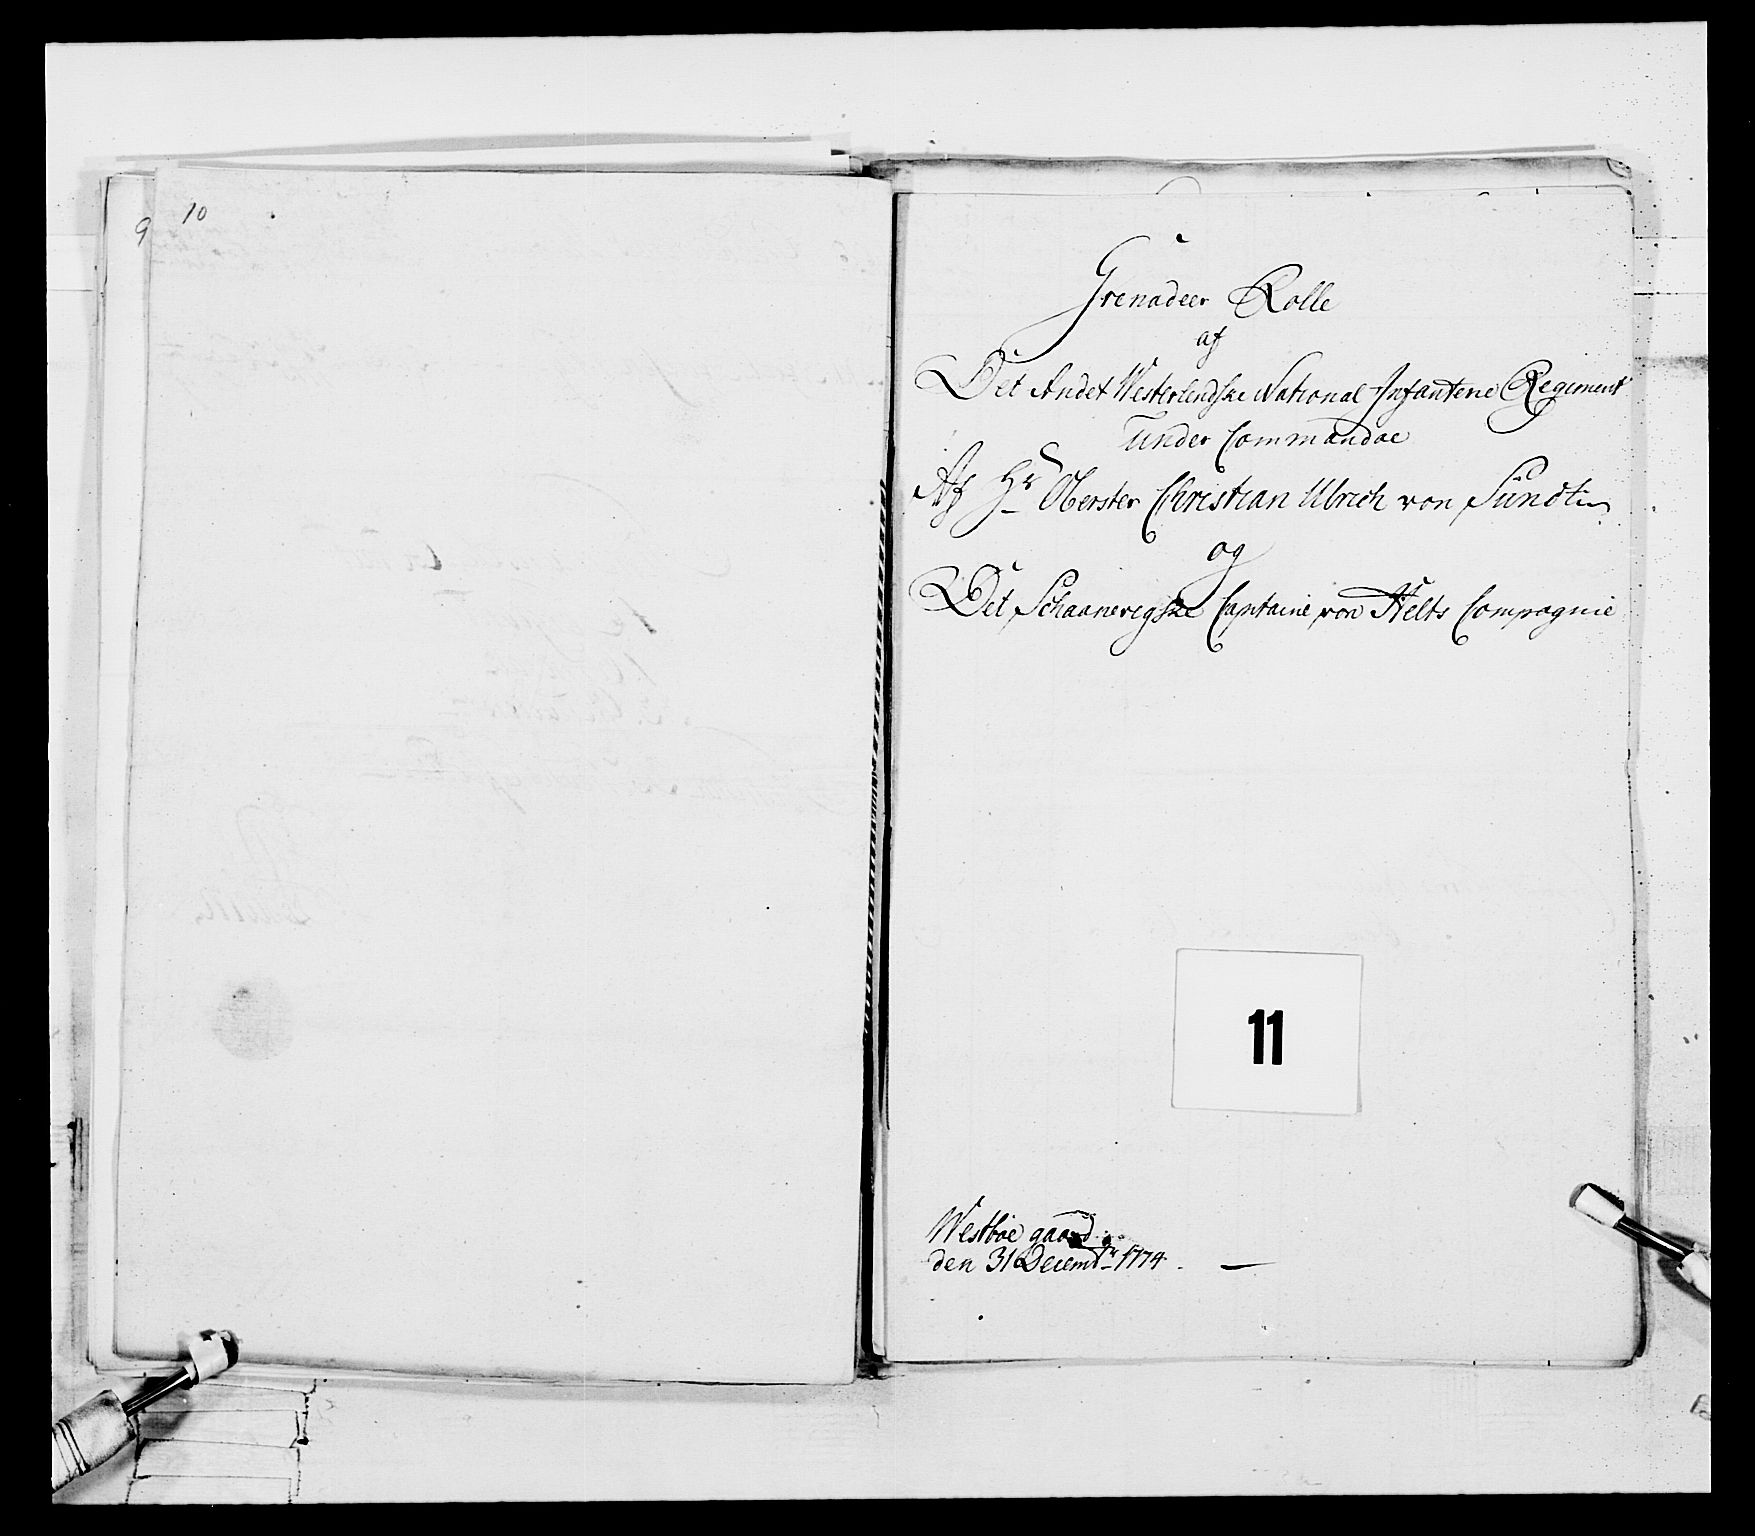 9
10
Grenadeer Rolle
af
Det Andet Westerlendske National Infanterie Regiment
under Commandoe
Af Hr Oberster Christian Ulrich von Sundt
og
Det Schaanevigske Captaine von Helts Compagnie
11
Westbøe gaard
den 31 Decembr 1774.